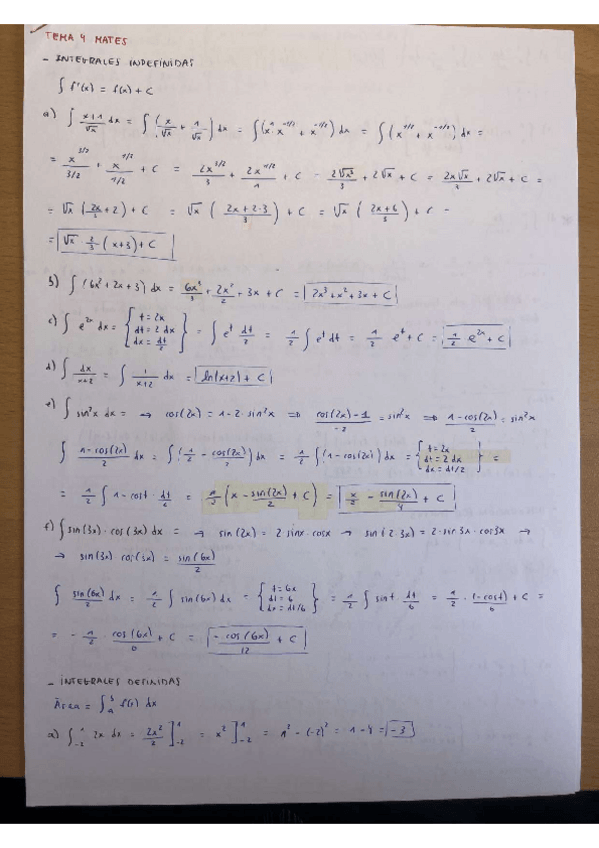 TEMA 4 MATES
- INTEGRALES INDEFINIDAS
∫ f'(x) = f(x) + C
a) ∫ x+1/√x dx = ∫ (x/√x + 1/√x) dx = ∫ (x · x^-1/2 + x^-1/2) dx = ∫ (x^1/2 + x^-1/2) dx =
= x^3/2 / 3/2 + x^1/2 / 1/2 + C = 2x^3/2 / 3 + 2x^1/2 / 1 + C = 2√x³/3 + 2√x + C = 2x√x/3 + 2√x + C =
= √x (2x/3 + 2) + C = √x (2x + 2·3 / 3) + C = √x (2x+6 / 3) + C =
= √x · 2/3 (x+3) + C
b) ∫ (6x² + 2x + 3) dx = 6x³/3 + 2x²/2 + 3x + C = 2x³ + x² + 3x + C
c) ∫ e^2x dx = { t = 2x
dt = 2 dx
dx = dt/2 } = ∫ e^t dt/2 = 1/2 ∫ e^t dt = 1/2 e^t + C = 1/2 e^2x + C
d) ∫ dx/x+2 = ∫ 1/x+2 dx = ln(x+2) + C
e) ∫ sin²x dx = → cos(2x) = 1 - 2·sin²x ⇒ cos(2x)-1 / -2 = sin²x ⇒ 1-cos(2x) / 2 = sin²x
∫ 1-cos(2x)/2 dx = ∫ (1/2 - cos(2x)/2) dx = 1/2 ∫ (1-cos(2x)) dx = { t = 2x
dt = 2 dx
dx = dt/2 } =
= 1/2 ∫ 1-cost · dt/2 = 1/2 (x - sin(2x)/2 + C) = x/2 - sin(2x)/4 + C
f) ∫ sin(3x)·cos(3x) dx = → sin(2x) = 2·sinx·cosx → sin(2·3x) = 2·sin3x·cos3x →
→ sin(3x) cos(3x) = sin(6x)/2
∫ sin(6x)/2 dx = 1/2 ∫ sin(6x) dx = { t = 6x
dt = 6
dx = dt/6 } = 1/2 ∫ sint dt/6 = 1/2 · (-cost)/6 + C =
= - 1/2 · cos(6x)/6 + C = - cos(6x)/12 + C
- INTEGRALES DEFINIDAS
Área = ∫_a^b f(x) dx
a) ∫_-2^1 2x dx = 2x²/2 ]_-2^1 = x² ]_-2^1 = 1² - (-2)² = 1 - 4 = -3